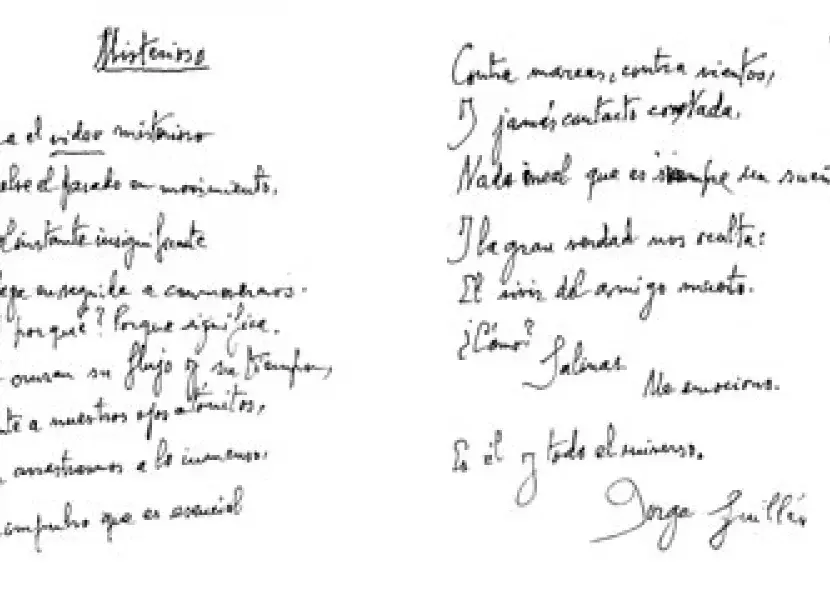 Misterioso
a el video misterioso
el pasado en movimiento.
instante insignificante
enseguida a conmovernos.
porqué? Porque significa.
su flujo y su tiempo,
te a nuestros ojos atónitos,
arrastrarnos a lo inmenso,
impulso que es esencial
Contra mareas, contra vientos,
Y jamás contacto con Nada.
Nada ideal que es siempre un sueñ
Y la gran verdad nos oculta:
El vivir del amigo muerto.
¿Cómo?
Salinas
Me emociono.
Es él y todo el universo.
Jorge Guillén